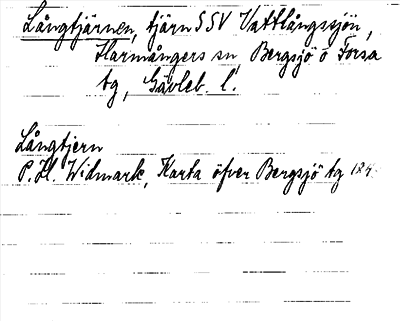 Långtjärnen, tjärn SSV Vattlångssjön,
Harmångers sn, Bergsjö o Forsa
tg, Gävleb. l.
Långtjern
P. H. Widmark, Karta öfver Bergsjö tg 184